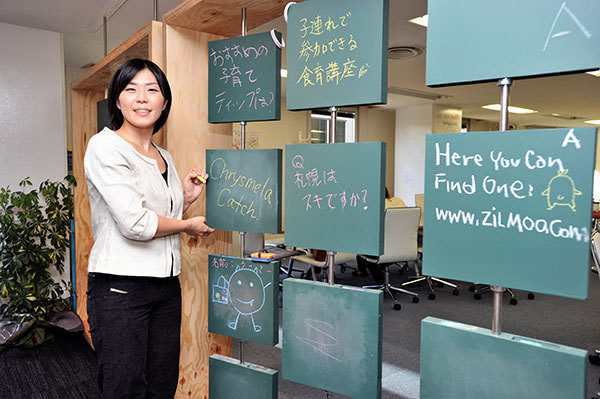 おすすめの
子育て
ティップは
子連れで
参加できる
食育講座
A
Chrysmela
Catch
Q
札幌は
スキですか?
A
Here You Can
Find One!
www.ZiLMOO.Com